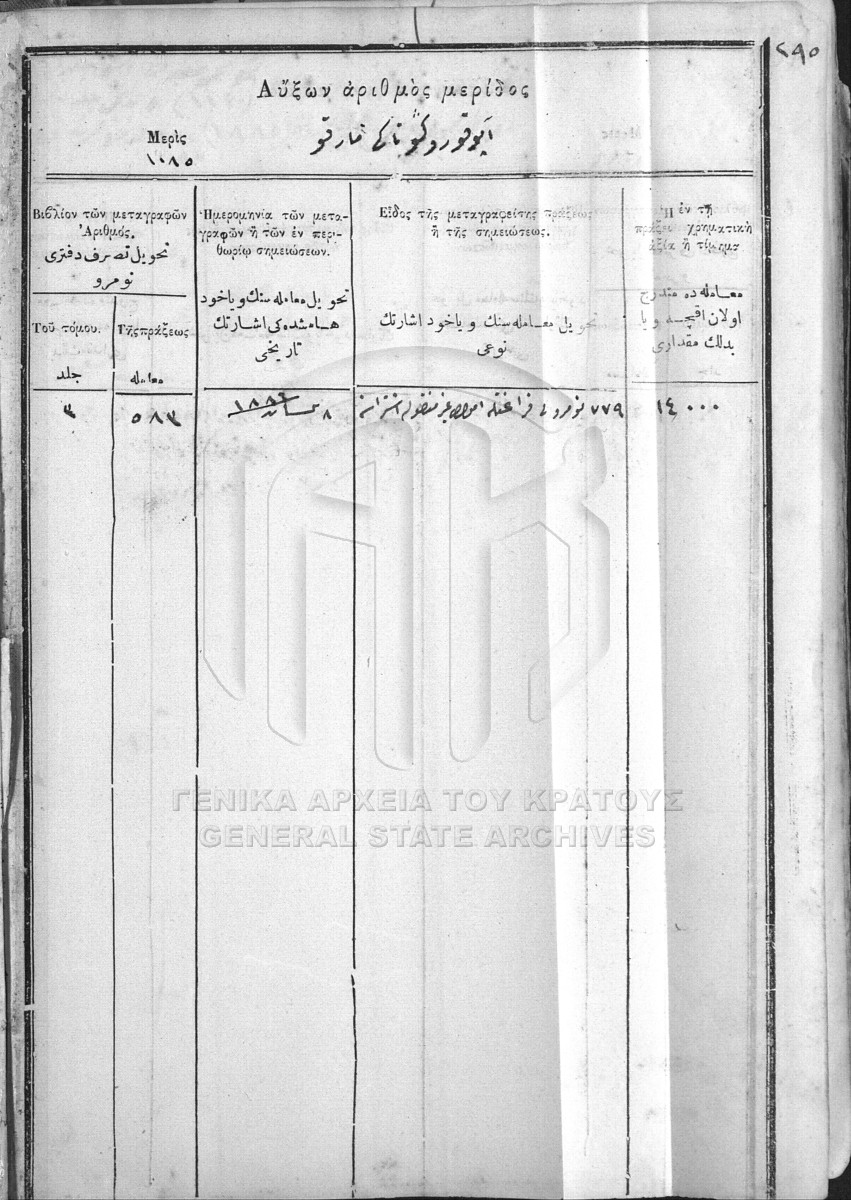 ٢٩٥
Αὔξων ἀριθμὸς μερίδος
Μερὶς
١٠٨٥
ماركو
Βιβλίον τῶν μεταγραφῶν
Ἀριθμός.
تحويل تصرف دفترى
نومرو
Ἡμερομηνία τῶν μετα-
γραφῶν ἢ τῶν ἐν περι-
θωρίῳ σημειώσεων.
تحويل معامله سنك وياخود
هامشده كى اشارتك
تاريخى
Εἶδος τῆς μεταγραφείσης πράξεως
ἢ τῆς σημειώσεως.
تحويل معامله سنك وياخود اشارتك
نوعى
Ἡ ἐν τῇ
πράξει χρηματικὴ
ἀξία ἢ τίμημα
معامله ده مندرج
اولان اقچه ويا
بدلك مقدارى
Τοῦ τόμου.
جلد
Τῆς πράξεως
معامله
٣
٥٨٣
٨
٧٧٩ نومرولى
١٤٠٠٠
ΓΕΝΙΚΑ ΑΡΧΕΙΑ ΤΟΥ ΚΡΑΤΟΥΣ
GENERAL STATE ARCHIVES